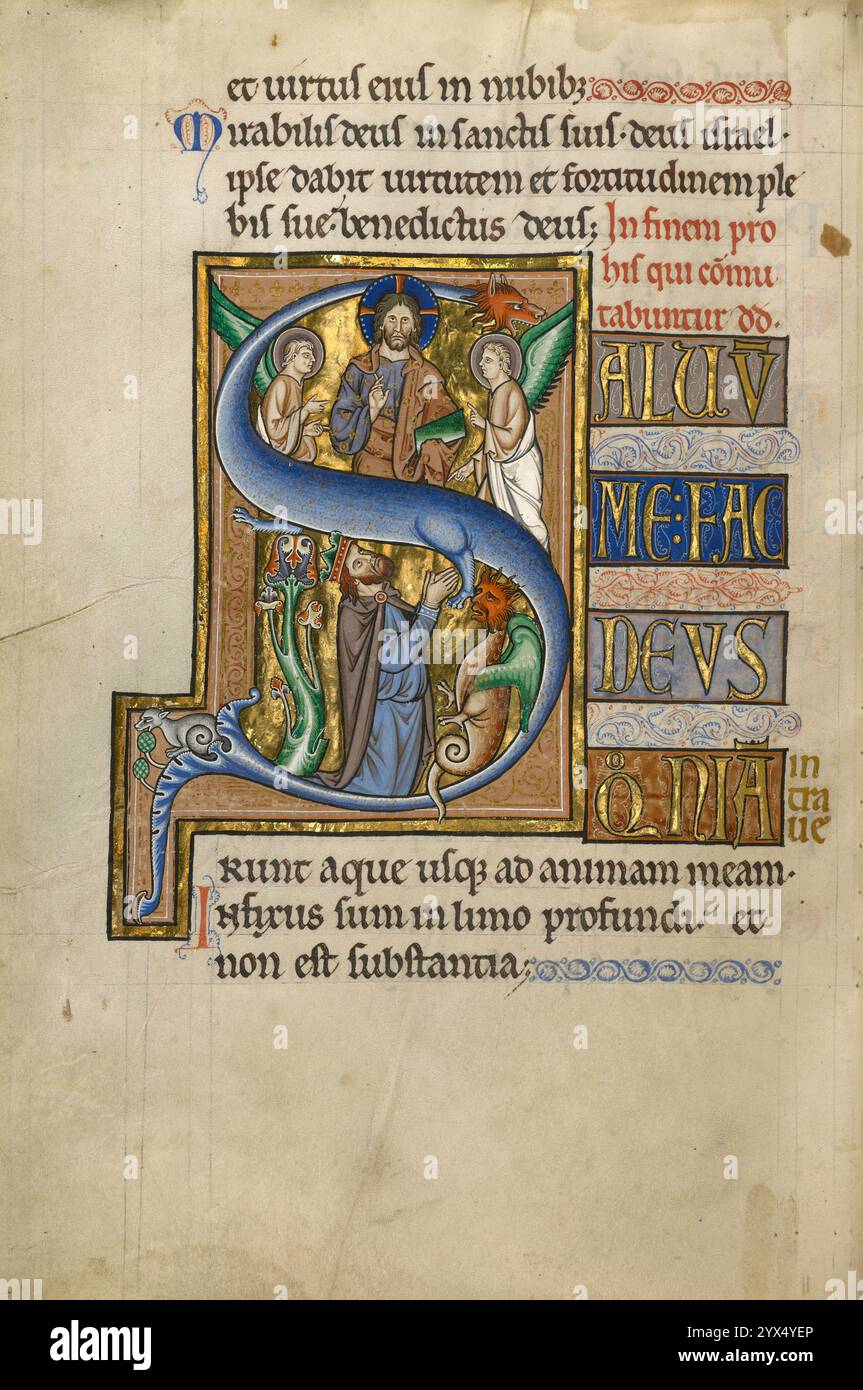 et uirtus eius in nubibꝫ
Mirabilis deus in sanctis suis· deus israel·
ipse dabit uirtutem et fortitudinem ple
bis sue· benedictus deus; In finem pro
his qui cōmu
tabuntur dd·
SALUV̄
ME:FAC
DEVS
QͦNIĀ
in
tra
ue
runt aque usqꝫ ad animam meam·
Infixus sum in limo profundi· et
non est substantia;
alamy
Image ID: 2YX4YEP
www.alamy.com